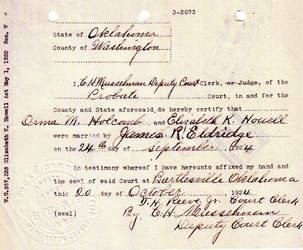 3-2073
State of Oklahoma
County of Washington
I, E.H. Musselman Deputy Court Clerk, or Judge, of the
Probate Court, in and for the
County and State aforesaid, do hereby certify that
Orma M. Holcomb and Elizabeth K. Howell
were married by James R. Eldridge
on the 24th day of September 1924
In testimony whereof I have hereunto affixed my hand and
the seal of said Court at Bartlesville Oklahoma
this 20 day of October 1924.
Jr. Court Clerk
(seal) By E.H. Musselman
Deputy Court Clerk
Elizabeth K. Howell Act May 1, 1920